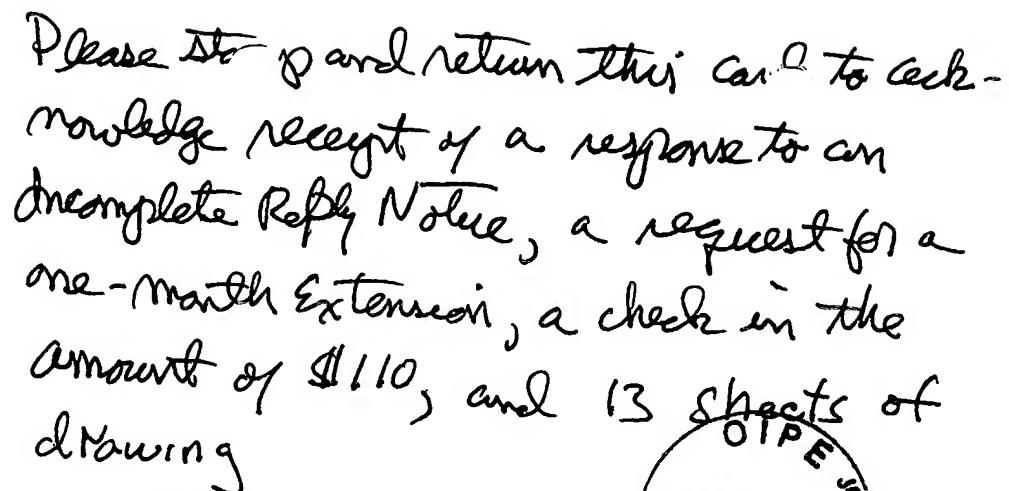 Please st p and return this card to ack-
nowledge receipt of a response to an
Incomplete Reply Notice, a request for a
one-month Extension, a check in the
amount of $110, and 13 sheets of
drawing
OIPE